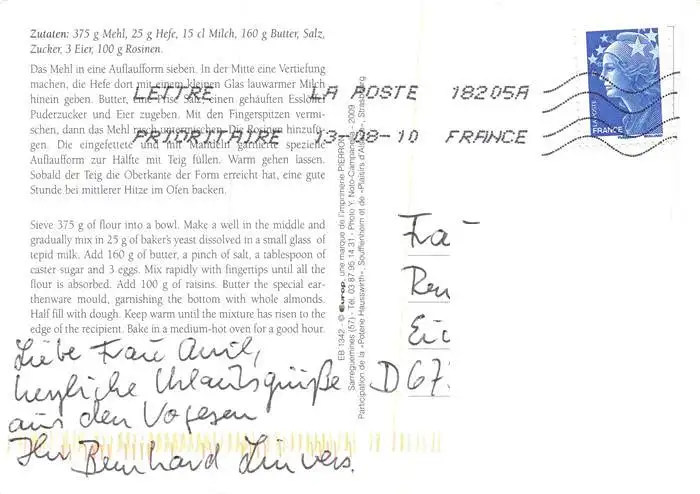 Zutaten: 375 g Mehl, 25 g Hefe, 15 cl Milch, 160 g Butter, Salz,
Zucker, 3 Eier, 100 g Rosinen.
Das Mehl in eine Auflaufform sieben. In der Mitte eine Vertiefung
machen, die Hefe dort mit einem kleinen Glas lauwarmer Milch
hinein geben. Butter, eine Prise Salz, einen gehäuften Esslöffel
Puderzucker und Eier zugeben. Mit den Fingerspitzen vermi-
schen, dann das Mehl rasch untermischen. Die Rosinen hinzufü-
gen. Die eingefettete und mit Mandeln garnierte spezielle
Auflaufform zur Hälfte mit Teig füllen. Warm gehen lassen.
Sobald der Teig die Oberkante der Form erreicht hat, eine gute
Stunde bei mittlerer Hitze im Ofen backen.
LETTRE LA POSTE 18205A
PRIORITAIRE 13-08-10 FRANCE
LA POSTE
FRANCE
Sieve 375 g of flour into a bowl. Make a well in the middle and
gradually mix in 25 g of baker's yeast dissolved in a small glass of
tepid milk. Add 160 g of butter, a pinch of salt, a tablespoon of
caster sugar and 3 eggs. Mix rapidly with fingertips until all the
flour is absorbed. Add 100 g of raisins. Butter the special ear-
thenware mould, garnishing the bottom with whole almonds.
Half fill with dough. Keep warm until the mixture has risen to the
edge of the recipient. Bake in a medium-hot oven for a good hour.
EB 1342 - © Europ, une marque de l'imprimerie PIERRON
Sarreguemines (57) - Tél. 03 87 95 14 31 - Photo Y. Noto-Campanella - 2009
Participation de la «Poterie Hausswirth», Soufflenheim et de «Plaisirs d'Alsace», Strasbourg
Liebe Frau
herzliche Urlaubsgrüße
aus den Vogesen
Ihr Bernhard
Fra
Ren
Eic
D 673